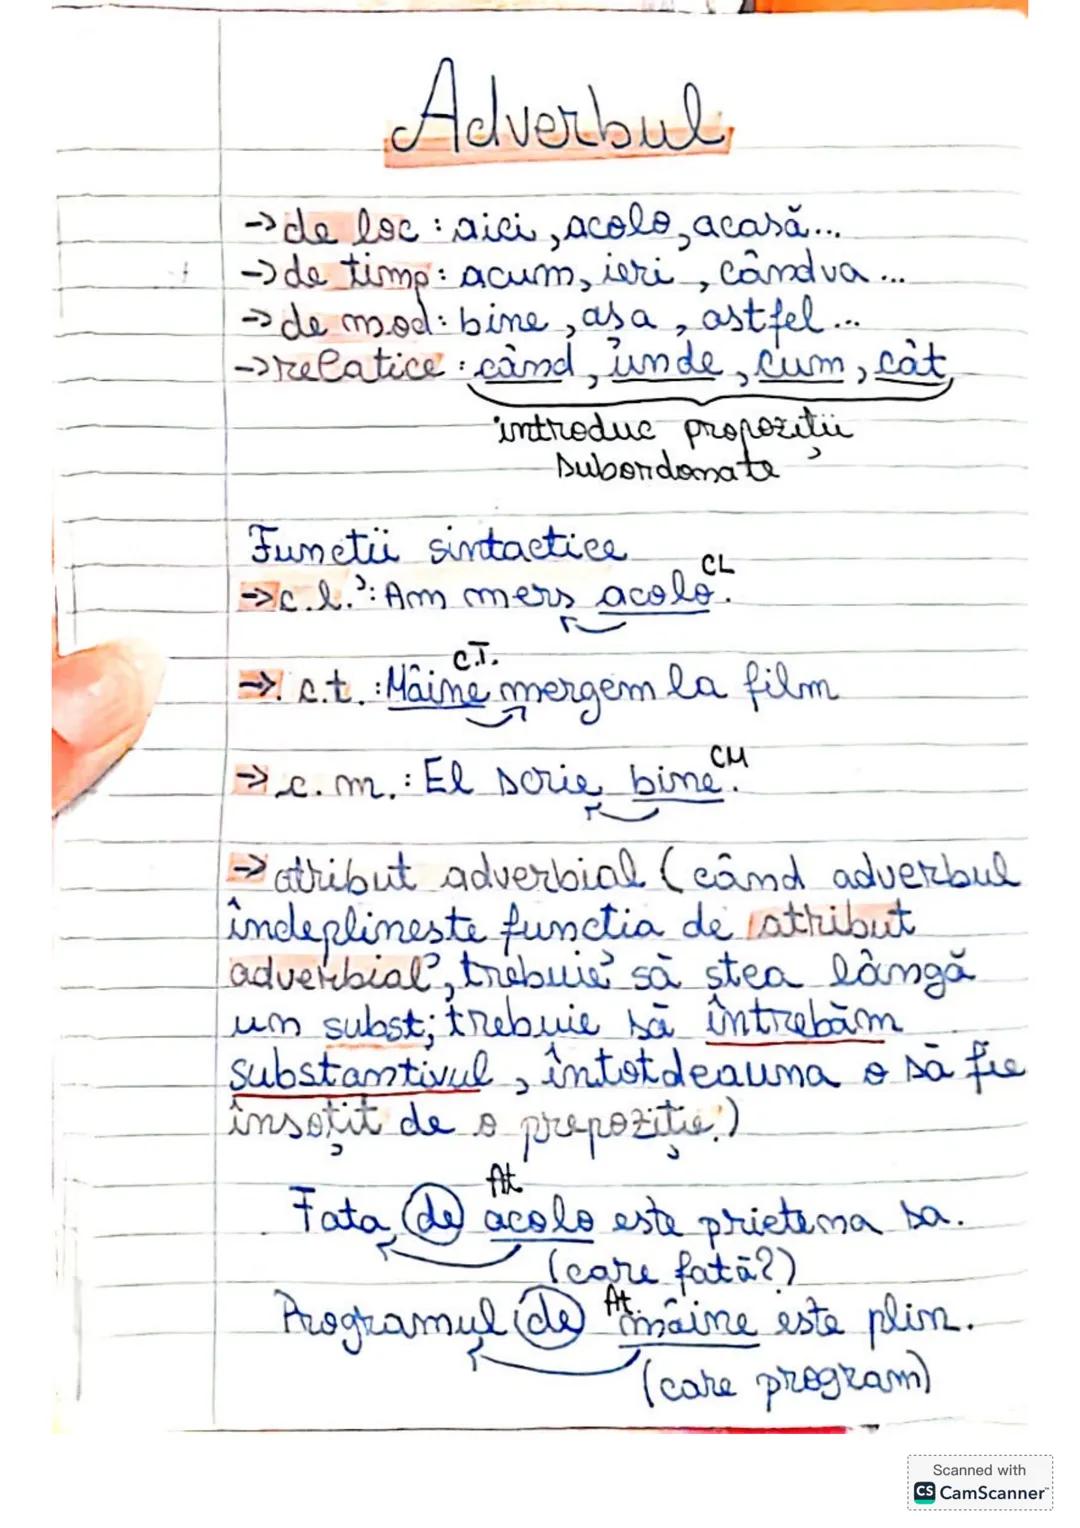 Adverbul
→ de loc : aici, acolo, acasă...
→ de timp : acum, ieri, cândva ...
→ de mod : bine, asa, astfel ...
→ relatice : când, unde, cum, cât
introduc propoziții
subordonate
Functii sintactice
CL
→ c.l. : Am mers acolo.
C.T.
→ c.t. : Mâine mergem la film
CM
→ c.m. : El scrie bine.
→ atribut adverbial (când adverbul
îndeplineste functia de atribut
adverbial, trebuie să stea lângă
un subst; trebuie să întrebăm
substantivul, întotdeauna o să fie
însoțit de o prepoziție.)
At
Fata de acolo este prietena sa.
(care fată?)
At.
Programul de mâine este plin.
(care program)
Scanned with
CS CamScanner